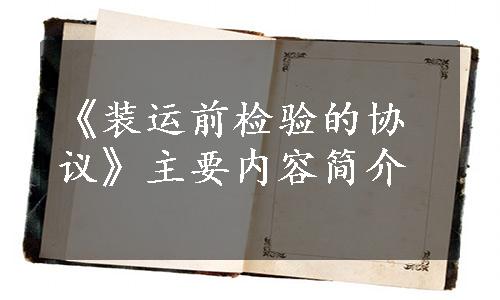 《装运前检验的协
议》主要内容简介